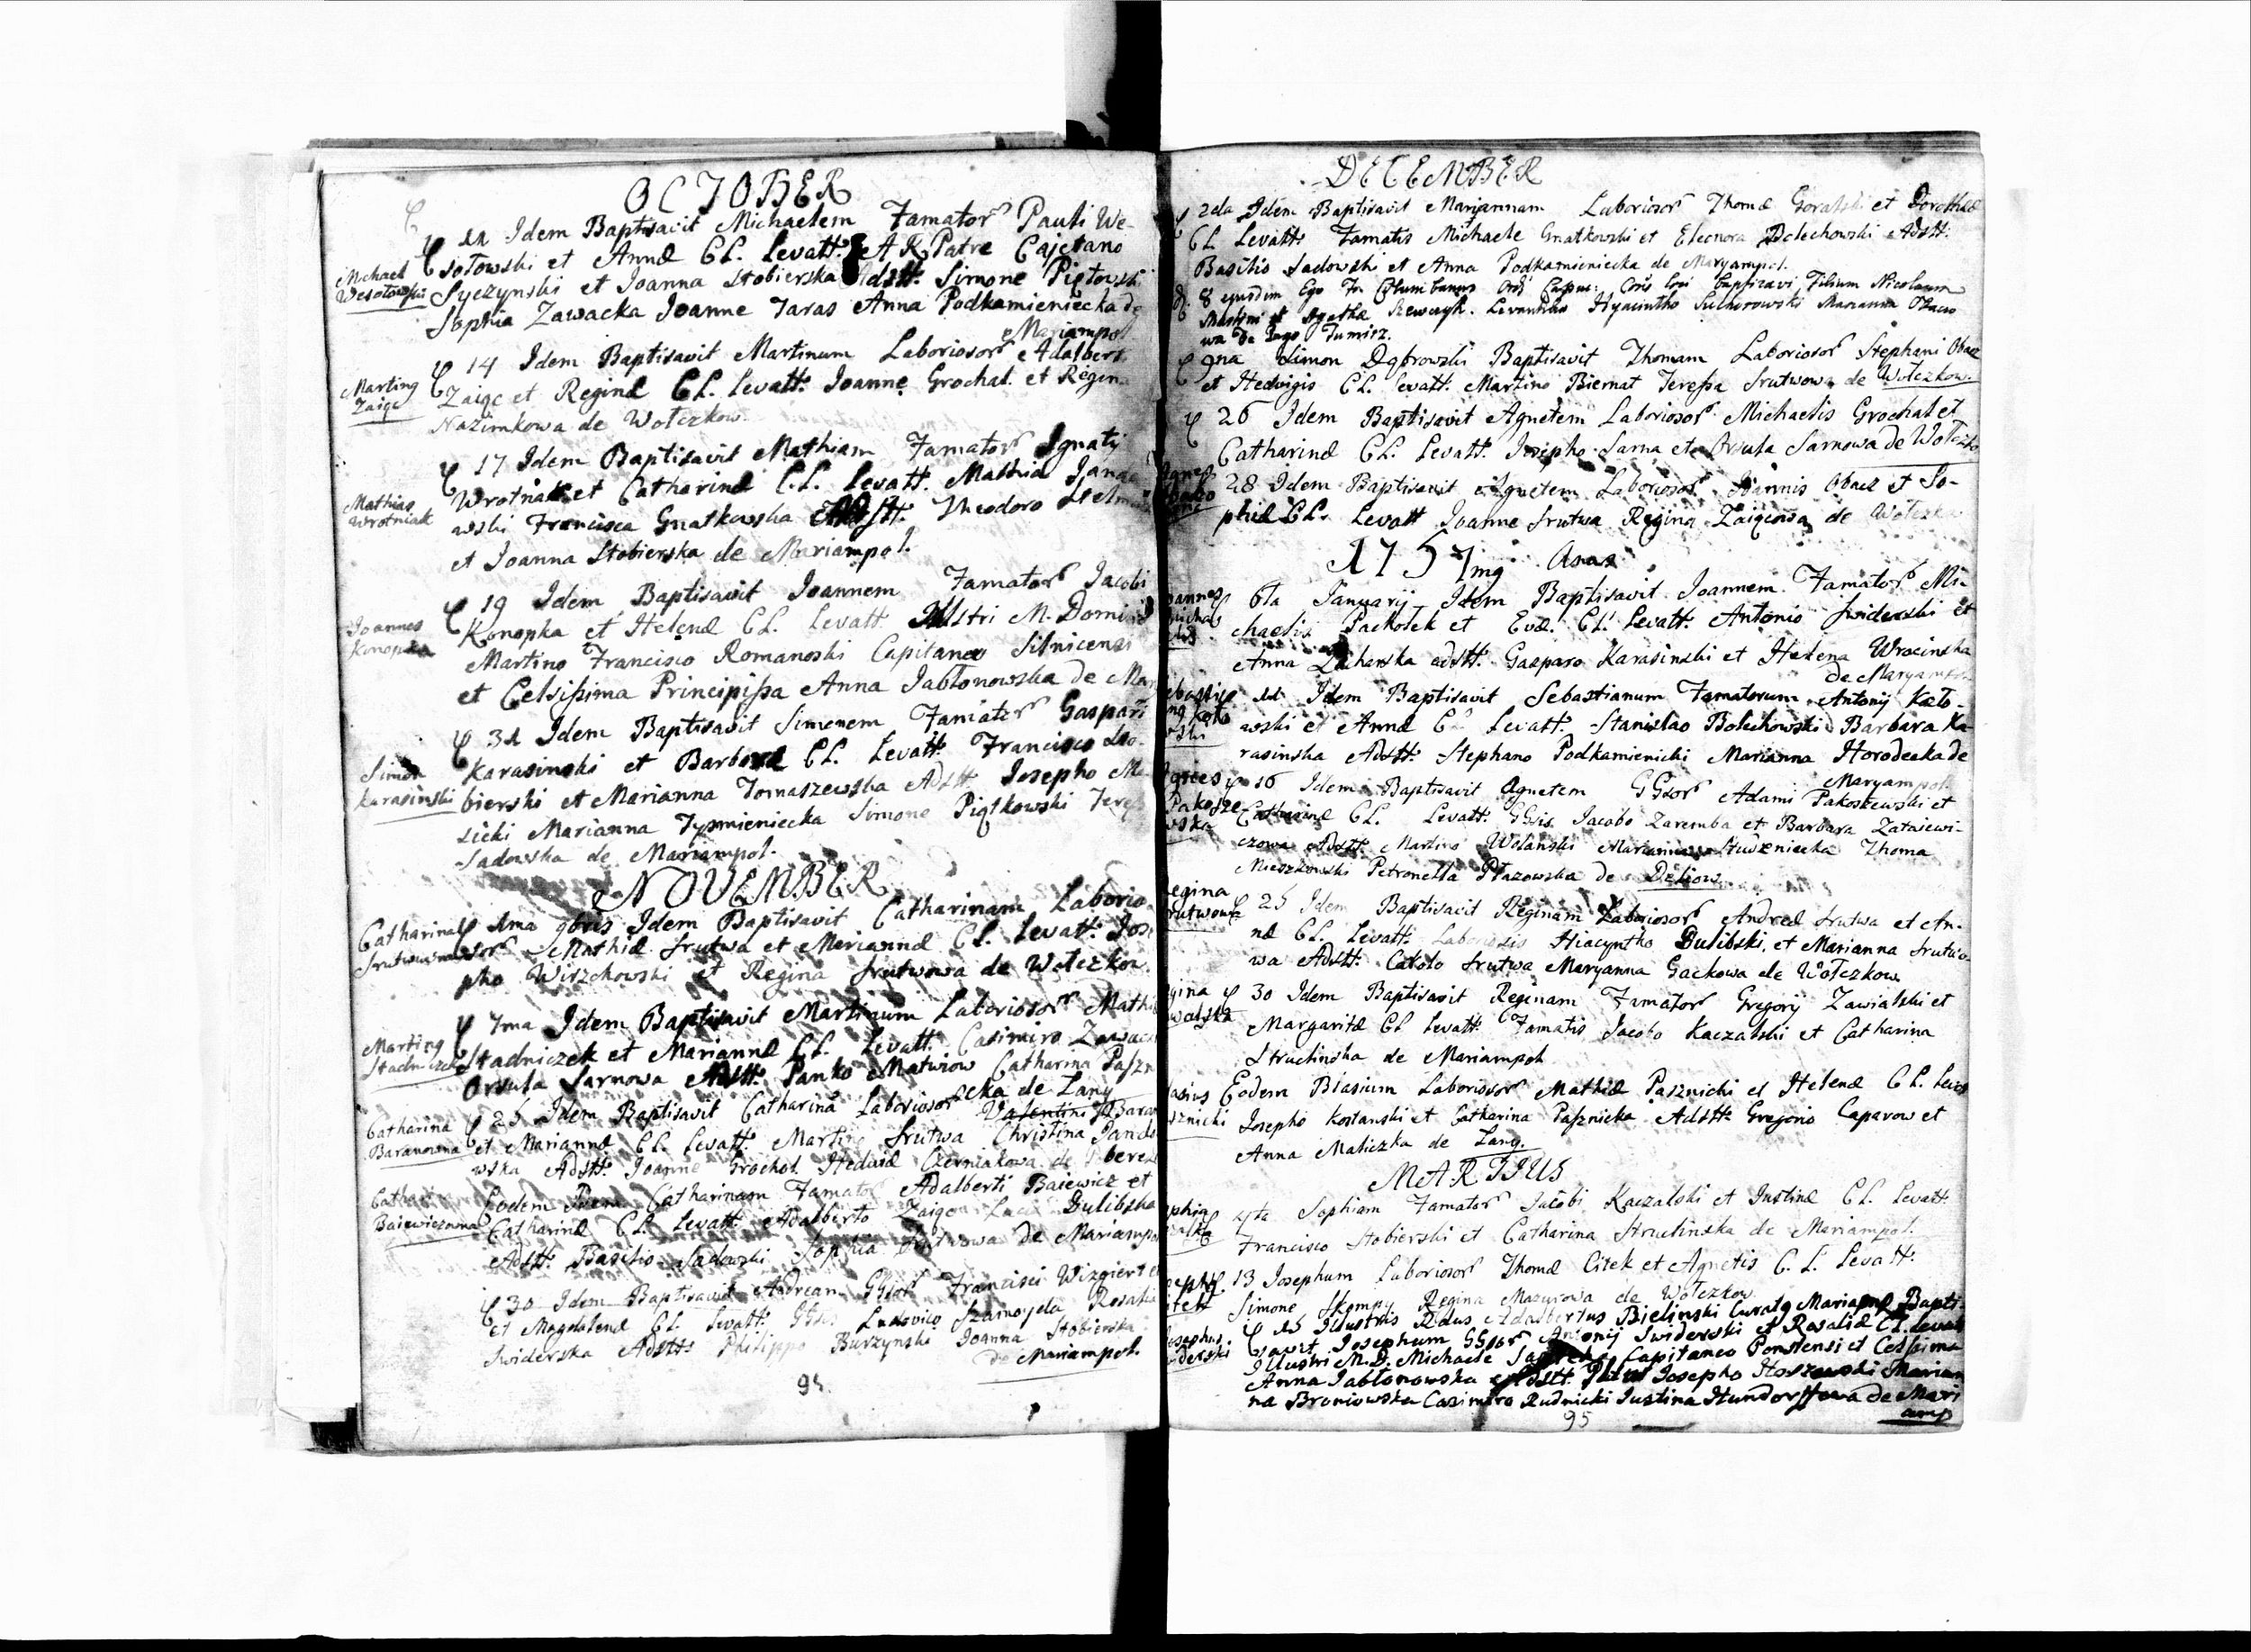 OCTOBER
Idem Baptisavit Michaelem Famator Pauli We-
sołowski et Annæ CL. Levatt. A R. Patre Cajetano
Michael
Wesołowski
Syczynski et Joanna Stobierska Adstt. Simone Piętowski
Sophia Zawacka Joanne Taras Anna Podkamieniecka de
Mariampol
14 Idem Baptisavit Martinum Laboriosor Adalberti
Marting
Zaigc
Zaigc et Reginæ CL. Levatt. Joanne Grochal. et Regina
Nazimkowa de Wołczkow.
17 Idem Baptisavit Mathiam Famator Ignatij
Mathias
Wrotniak
Wrotniak et Catharinæ C.L. Levatt. Mathia
awski Francisca Gnatkowska Adstt. Theodoro
et Joanna Stobierska de Mariampol.
19 Idem Baptisavit Joannem Famator Jacobi
Joannes
Konopka
Konopka et Helenæ CL. Levatt. Illustri M. Domino
Martino Francisco Romanoski Capitaneo Silnicensi
et Celsissima Principissa Anna Jabłonowska de
Idem Baptisavit Simonem Famator Gaspari
Simon
Karasinski
Karasinski et Barbaræ CL. Levatt. Francisco Sto-
bierski et Marianna Tomaszewska Adstt Josepho
sicki Marianna Tysmieniecka Simone Piątkowski
Sadowska de Mariampol.
NOVEMBER
Catharina
1ma 9bris Idem Baptisavit Catharinam Laborio
sor Mathiæ Srutwa et Mariannæ CL. Levatt. Jos
pho Wirzchowski et Regina Srutwowa de Wołczkow.
7ma Idem Baptisavit Martinum Laboriosor
Marting
Stadniczek
Stadniczek et Mariannæ CL. Levatt. Casimiro
Orsula Sarnowa Adstt. Panko Maturow Catharina
cka de Lany
25 Idem Baptisavit Catharina Laboriosor Valentini
Catharina
Baranowna
et Mariannæ CL. Levatt. Martino Srutwa Christina
wska Adstt. Joanne Grochol. Hedvid Czerniakowa de
Eodem Idem Catharinam Famator Adalberti Baiewicz et
Baiewiczowna
Catharinæ CL. Levatt. Adalberto Zaigc Dulibska
Adstt. Basilio Sadowski Sophia Srutwowa de Mariampol
30 Idem Baptisavit Andream GGsor Francisci Wizgiert
et Magdalenæ CL. Levatt. Ludovico Szarnoyda Rosalia
Swiderska Adstts Philippo Burzynski Joanna Stobierska
de Mariampol.
94.
DECEMBER
2da Idem Baptisavit Mariannam Laboriosor Thomæ Goralski et Dorotheæ
CL Levatt. Famatis Michaele Gnatkowski et Eleonora Bolechowski Adstt.
Basilio Sadowski et Anna Podkamieniecka de Maryampol.
8 ejusdem Ego Fr. Columbanus Ord: Capuc: Baptizavi Filium Nicolaum
Martini et Agathæ Szewczyk. Levantibus Hyacintho Sucharowski Marianna Obacio
wa de Pago Tumirz.
9na Simon Dąbrowski Baptisavit Thomam Laboriosor Stephani Obacz
et Hedvigis CL. Levatt. Martino Biernat Teressa Srutwowa de Wołczkow.
26 Idem Baptisavit Agnetem Laboriosor Michaelis Grochal et
Catharinæ CL. Levatt. Josepho Sarna et Orsula Sarnowa de Wołczko
28 Idem Baptisavit Agnetem Laboriosor Joannis Obacz et So-
phiæ CL. Levatt Joanne Srutwa Regina Zaigcowa de Wołczko
1757mg Anas
6ta Januarij Idem Baptisavit Joannem Famator Mi-
chaelis Packołek et Evæ CL. Levatt. Antonio Swiderski et
Anna Adstt. Gasparo Karasinski et Helena Wrocinska
de Maryampol
Idem Baptisavit Sebastianum Famatorum Antonij Koto-
wski et Annæ CL Levatt. Stanislao Bolechowski Barbara Ka-
rasinska Adstt. Stephano Podkamienicki Marianna Horodecka de
Maryampol.
16 Idem Baptisavit Agnetem GGsor Adami Pakoszewski et
Pakosze
wska
Catharinæ CL. Levatt. GGsis Jacobo Zaremba et Barbara Zataiewi-
czowa Adstt. Martino Wolanski Marianna Thoma
Mieszkowski Petronella Płazowska de Deliow.
25 Idem Baptisavit Reginam Laboriosor Andreæ Srutwa et An-
næ CL. Levatt. Laboriosis Hiacyntho Dulibski, et Marianna Srutwo-
wa Adstt. Catolo Srutwa Maryanna Gackowa de Wołczkow
30 Idem Baptisavit Reginam Famator Gregorij Zawialski et
Margaritæ CL Levatt. Famatis Jacobo Kaczalski et Catharina
Struclinska de Mariampol
Eodem Blasium Laboriosor Mathiæ Pasznicki et Helenæ CL. Levat
Josepho Kostanski et Catharina Pasznicka Adstt. Gregorio Caparow et
Anna Maliczka de Lany.
MARTIUS
4ta Sophiam Famator Jacobi Kaczalski et Justinæ CL. Levatt.
Francisco Stobierski et Catharina Struclinska de Mariampol.
13 Josephum Laboriosor Thomæ Citek et Agnetis C. L. Levatt.
Simone Skompy Regina Mazurowa de Wołczkow
Illustris Rdus Adalbertus Bielinski Curatg Mariamp Bapti-
savit Josephum GGsor Antonij Swiderski et Rosaliæ CL. Levatt
Illustri M. D. Michaele Capitaneo Ponstensi et Celssima
Anna Jabłonowska Adstt. Josepho Stoszewski Marian
na Broniowska Casimiro Rudnicki Justina Hundorffowa de Mari
amp
95